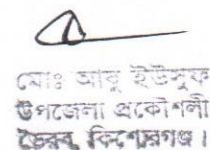 মোঃ আবু ইউসুফ
উপজেলা প্রকৌশলী
ভৈরব, কিশোরগঞ্জ।